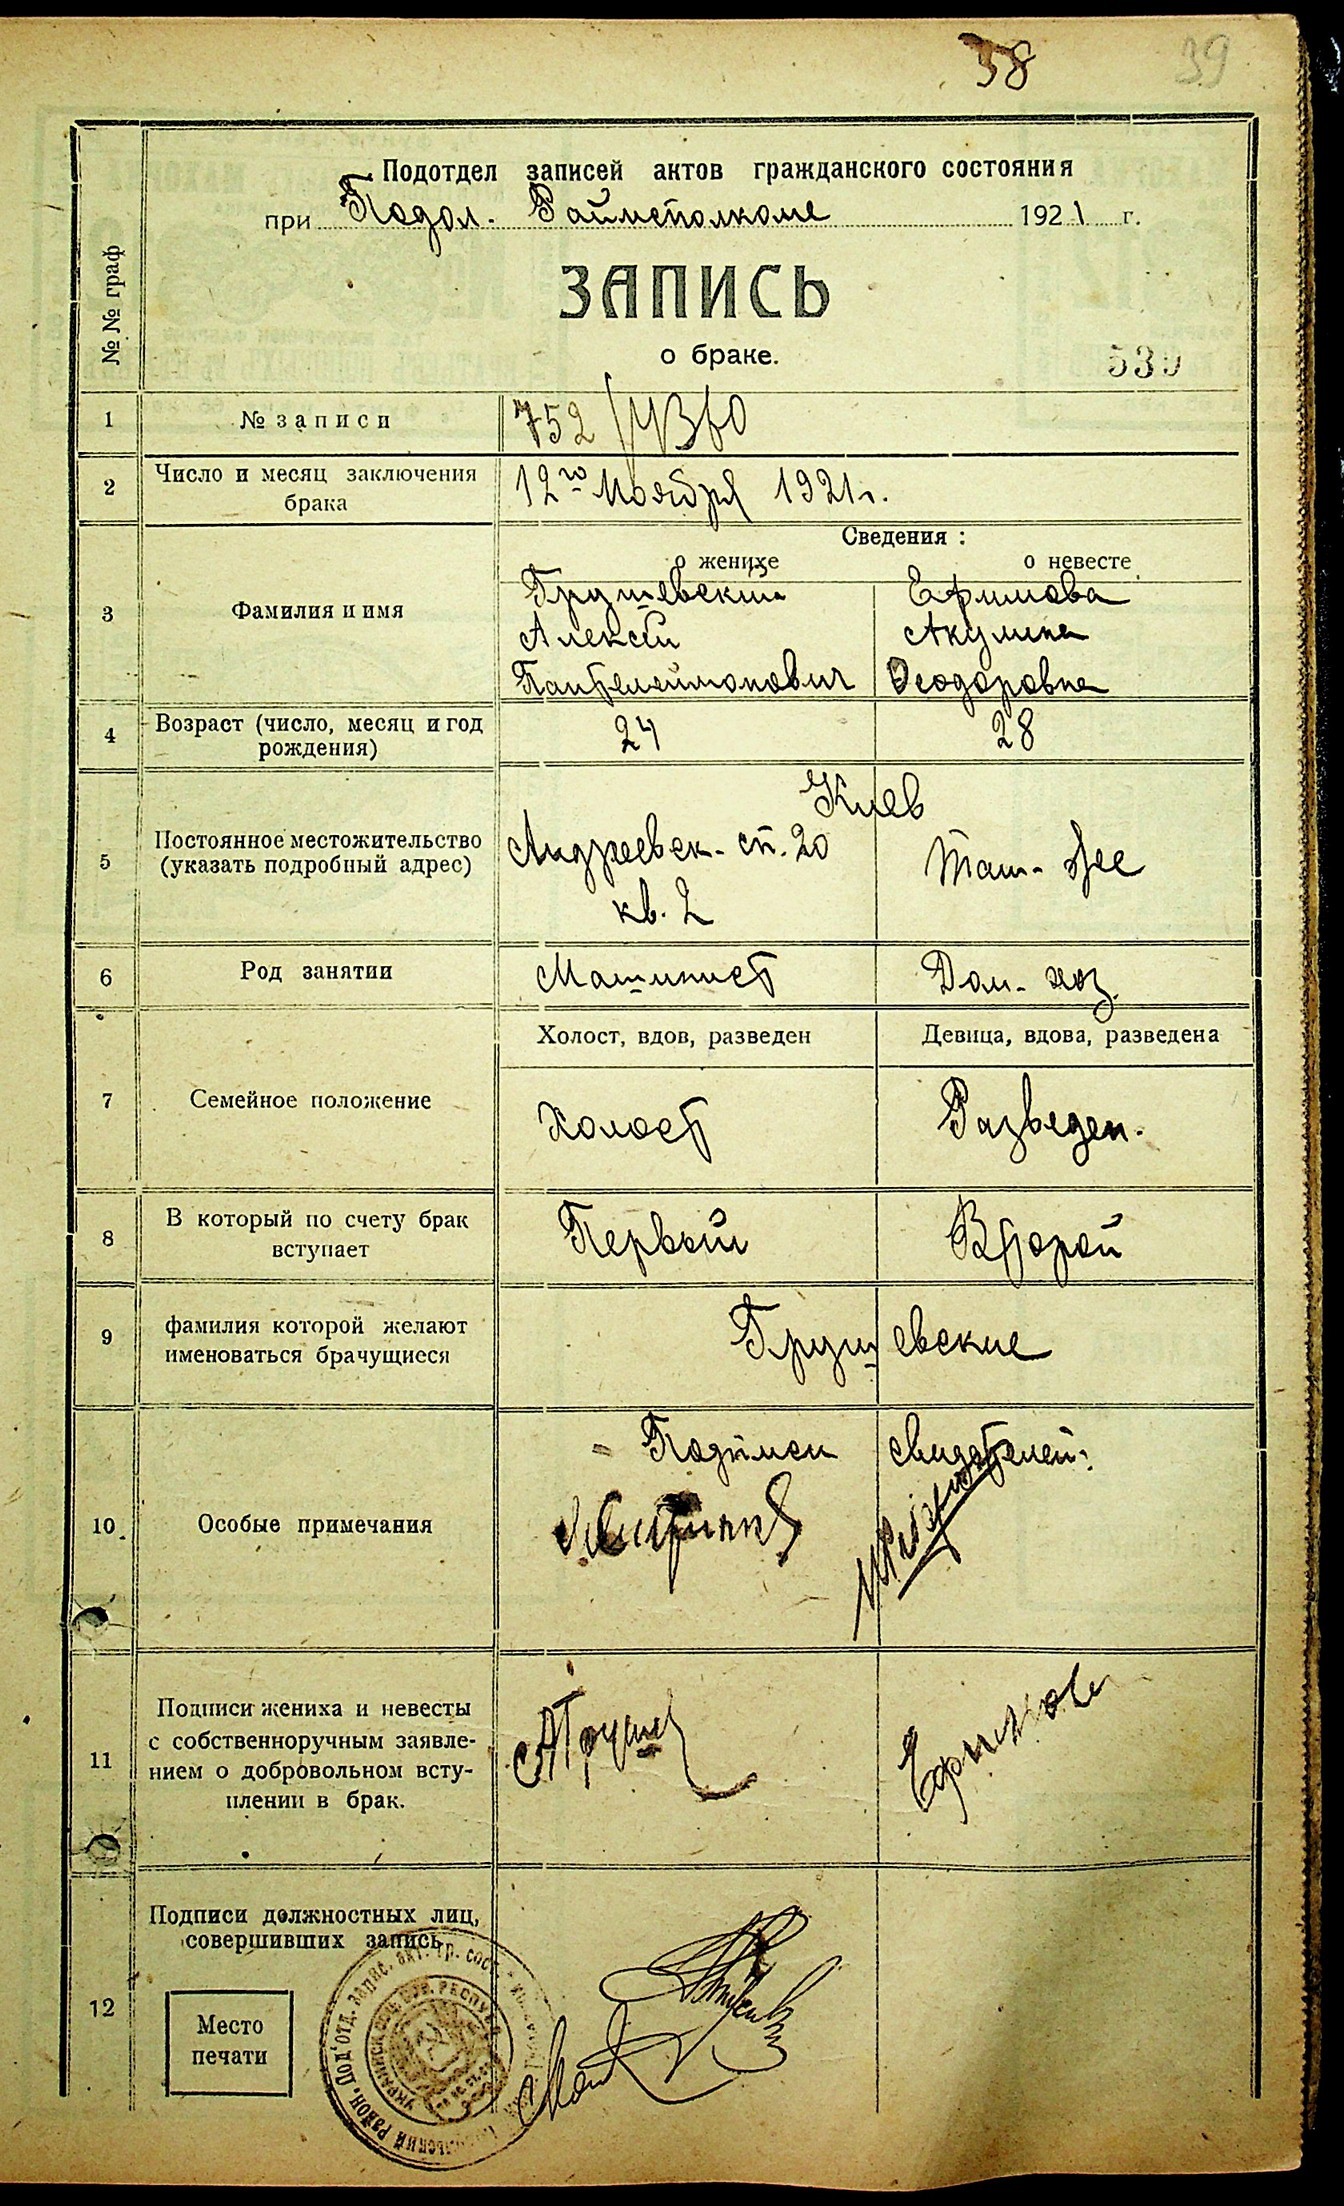 38 39
Подотдел записей актов гражданского состояния
при Подол. Райисполкоме 1921 г.
ЗАПИСЬ
о браке.
539
№ № граф
1 № записи 752
2 Число и месяц заключения брака 12го Ноября 1921 г.
Сведения :
о женихе о невесте
3 Фамилия и имя Грушевский Ефимова
Алексей Акулина
Пантелеймонович Феодоровна
4 Возраст (число, месяц и год рождения) 24 28
Киев
5 Постоянное местожительство Андреевск. сп. 20 Там-же
(указать подробный адрес) кв. 2
6 Род занятии Машинист Дом. хоз.
Холост, вдов, разведен Девица, вдова, разведена
7 Семейное положение Холост Разведен.
8 В который по счету брак вступает Первый Второй
9 фамилия которой желают именоваться брачущиеся Грушевские
Подписи свидетелей:
10 Особые примечания
11 Подписи жениха и невесты
с собственноручным заявле-
нием о добровольном всту-
плении в брак.
АГруш Ефимова
12 Подписи должностных лиц,
совершивших запись
Место
печати